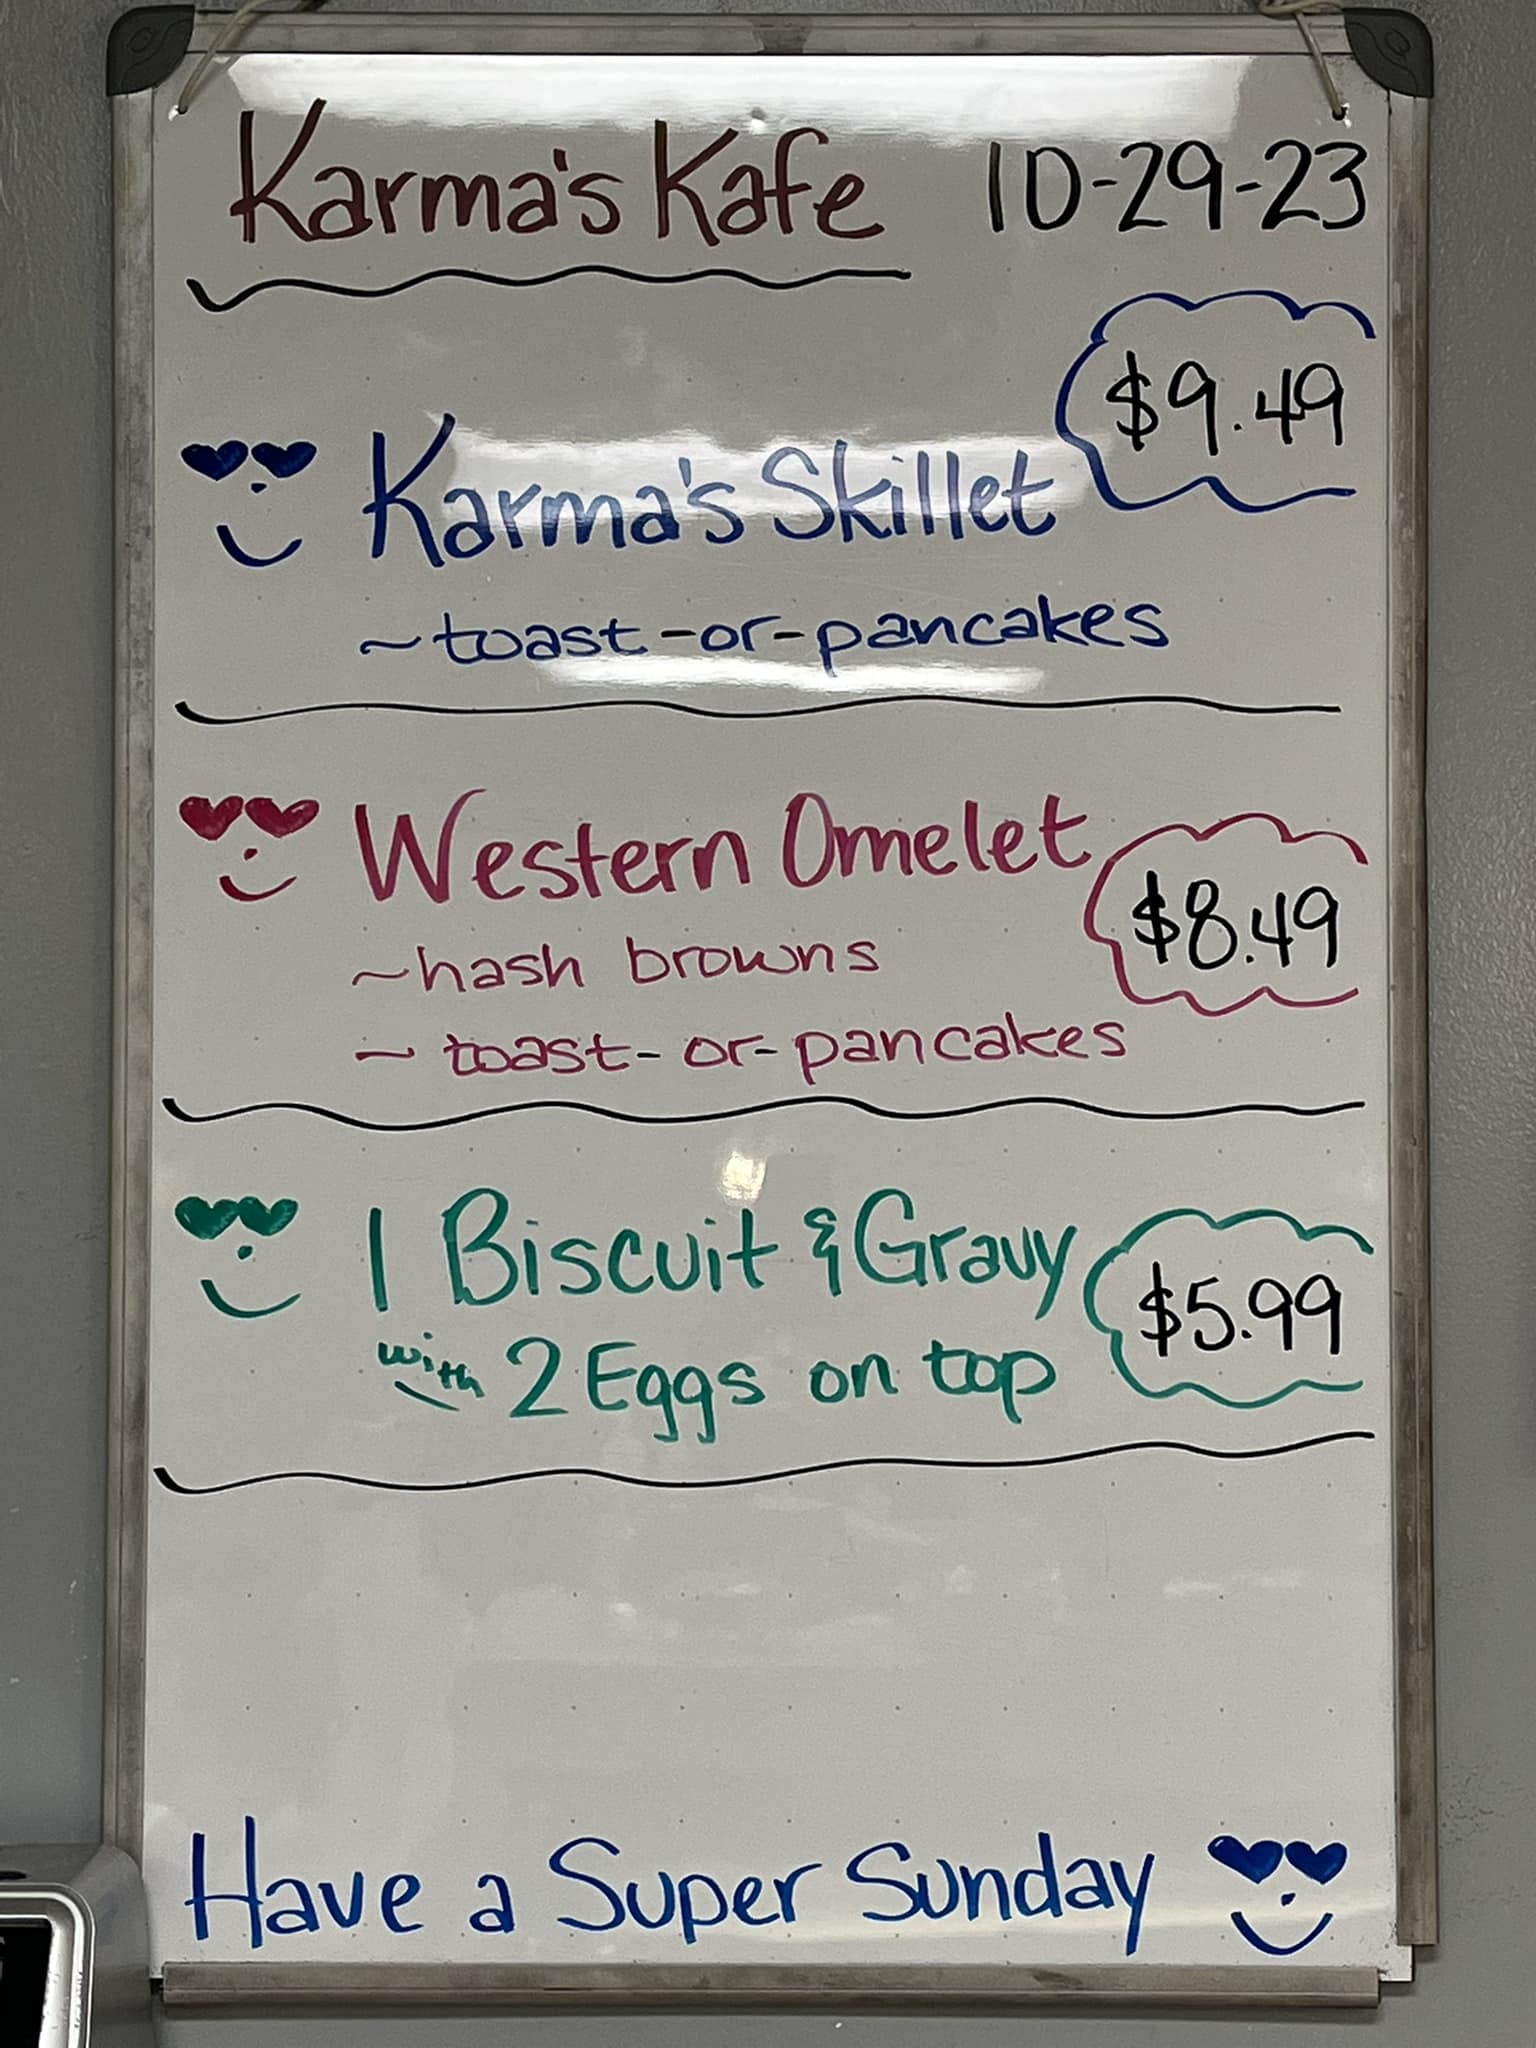 Karma's Kafe 10-29-23
$9.49
Karma's Skillet
~toast-or-pancakes
Western Omelet
$8.49
~hash browns
~toast-or-pancakes
1 Biscuit & Gravy
$5.99
with 2 Eggs on top
Have a Super Sunday